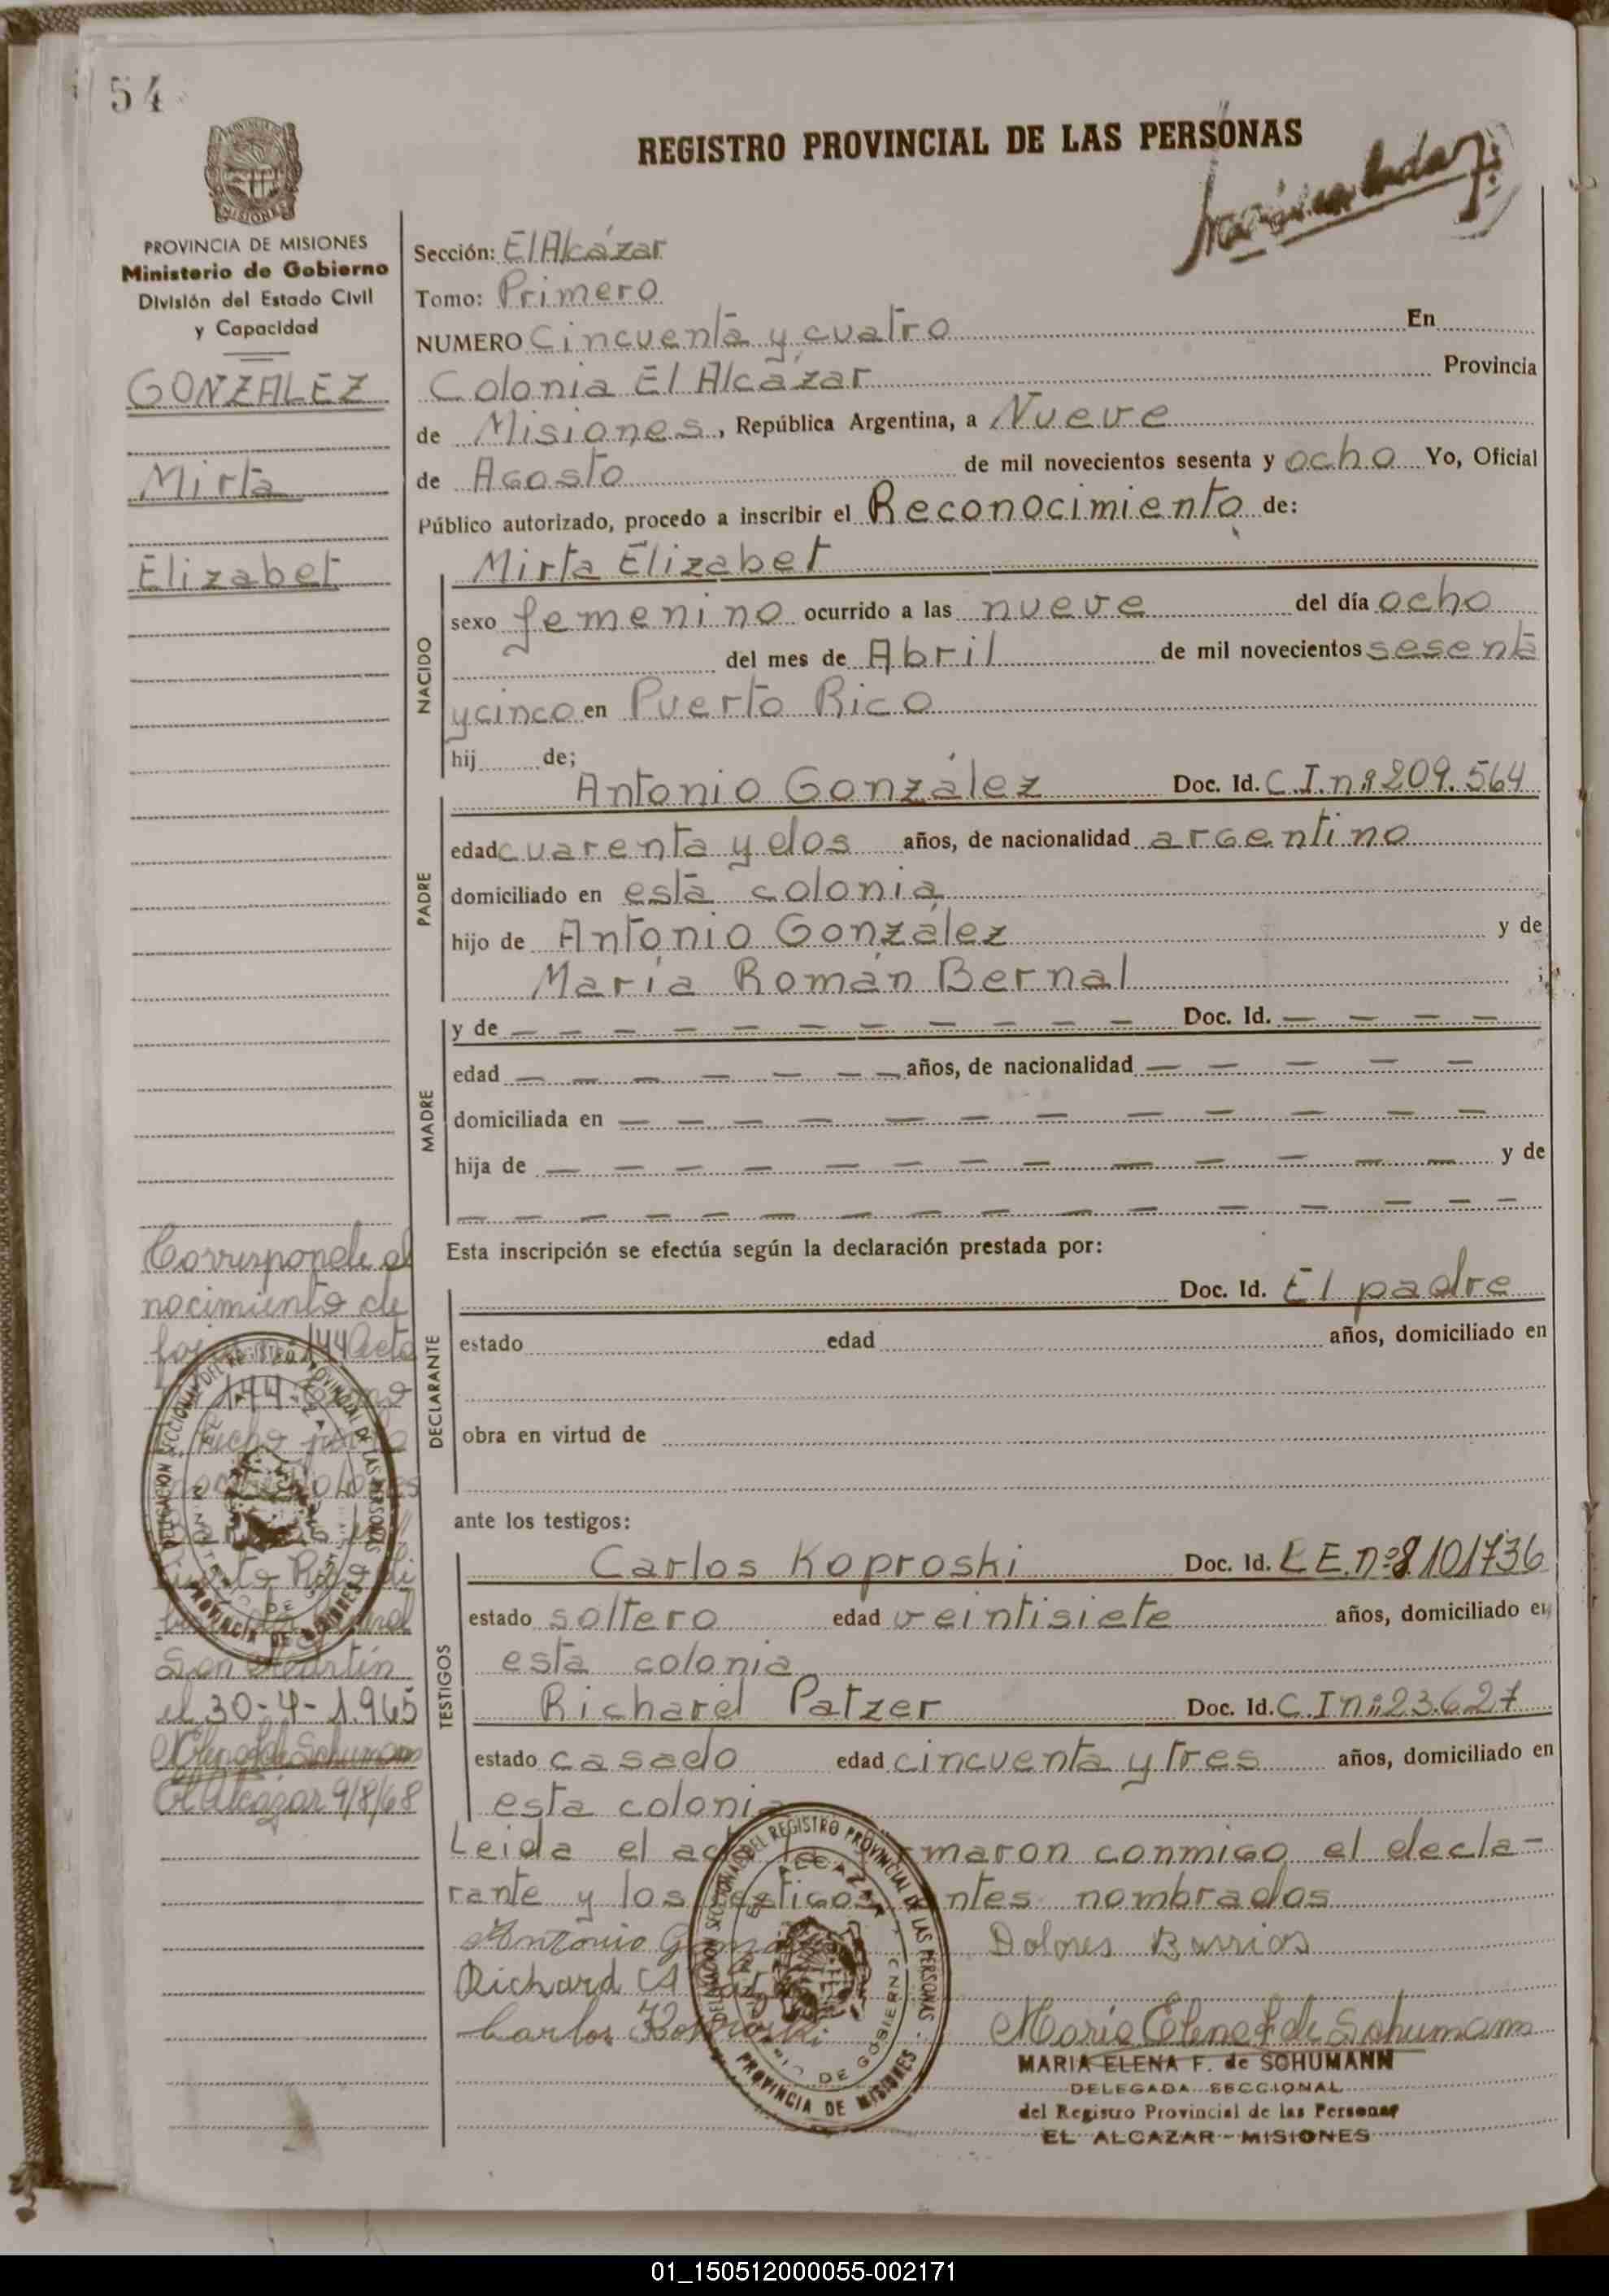 54
REGISTRO PROVINCIAL DE LAS PERSONAS
PROVINCIA DE MISIONES
Ministerio de Gobierno
División del Estado Civil
y Capacidad
GONZALEZ
Mirta
Elizabet
Sección: El Alcázar
Tomo: Primero
NUMERO Cincuenta y cuatro En
Colonia El Alcázar Provincia
de Misiones, República Argentina, a Nueve
de Agosto de mil novecientos sesenta y ocho Yo, Oficial
Público autorizado, procedo a inscribir el Reconocimiento de:
NACIDO
Mirta Elizabet
sexo femenino ocurrido a las nueve del día ocho
del mes de Abril de mil novecientos sesenta
y cinco en Puerto Rico
hij de;
PADRE
Antonio González Doc. Id. C.I.nº 209.564
edad cuarenta y dos años, de nacionalidad argentino
domiciliado en esta colonia
hijo de Antonio González y de
María Román Bernal ;
MADRE
y de — — — — — — — — — — Doc. Id. — — — —
edad — — — — — — — años, de nacionalidad — — — — —
domiciliada en — — — — — — — — — — — —
hija de — — — — — — — — — — — — — y de
— — — — — — — — — — — — — — — — —
Esta inscripción se efectúa según la declaración prestada por:
DECLARANTE
Doc. Id. El padre
estado edad años, domiciliado en
obra en virtud de
ante los testigos:
TESTIGOS
Carlos Koproski Doc. Id. L.E.nº 8.101736
estado soltero edad veintisiete años, domiciliado en
esta colonia
Richard Patzer Doc. Id. C.I nº 23.627
estado casado edad cincuenta y tres años, domiciliado en
esta colonia
Leida el acta la firmaron conmigo el decla-
rante y los testigos antes nombrados
Antonio González Dolores Barrios
Richard A
Carlos Koproski María Elena F. de Schumann
MARIA ELENA F. de SCHUMANN
DELEGADA SECCIONAL
del Registro Provincial de las Personas
EL ALCAZAR - MISIONES
DELEGACION SECCIONAL DEL REGISTRO PROVINCIAL DE LAS PERSONAS
EL ALCAZAR
MINISTERIO DE GOBIERNO
PROVINCIA DE MISIONES
Corresponde al
nacimiento de
144 Acta
144
Puerto Rico
San Martín
el 30-4-1.965
MElena F de Schumann
El Alcázar 9/8/68
DELEGACION SECCIONAL DEL REGISTRO PROVINCIAL DE LAS PERSONAS
PROVINCIA DE MISIONES
01_150512000055-002171